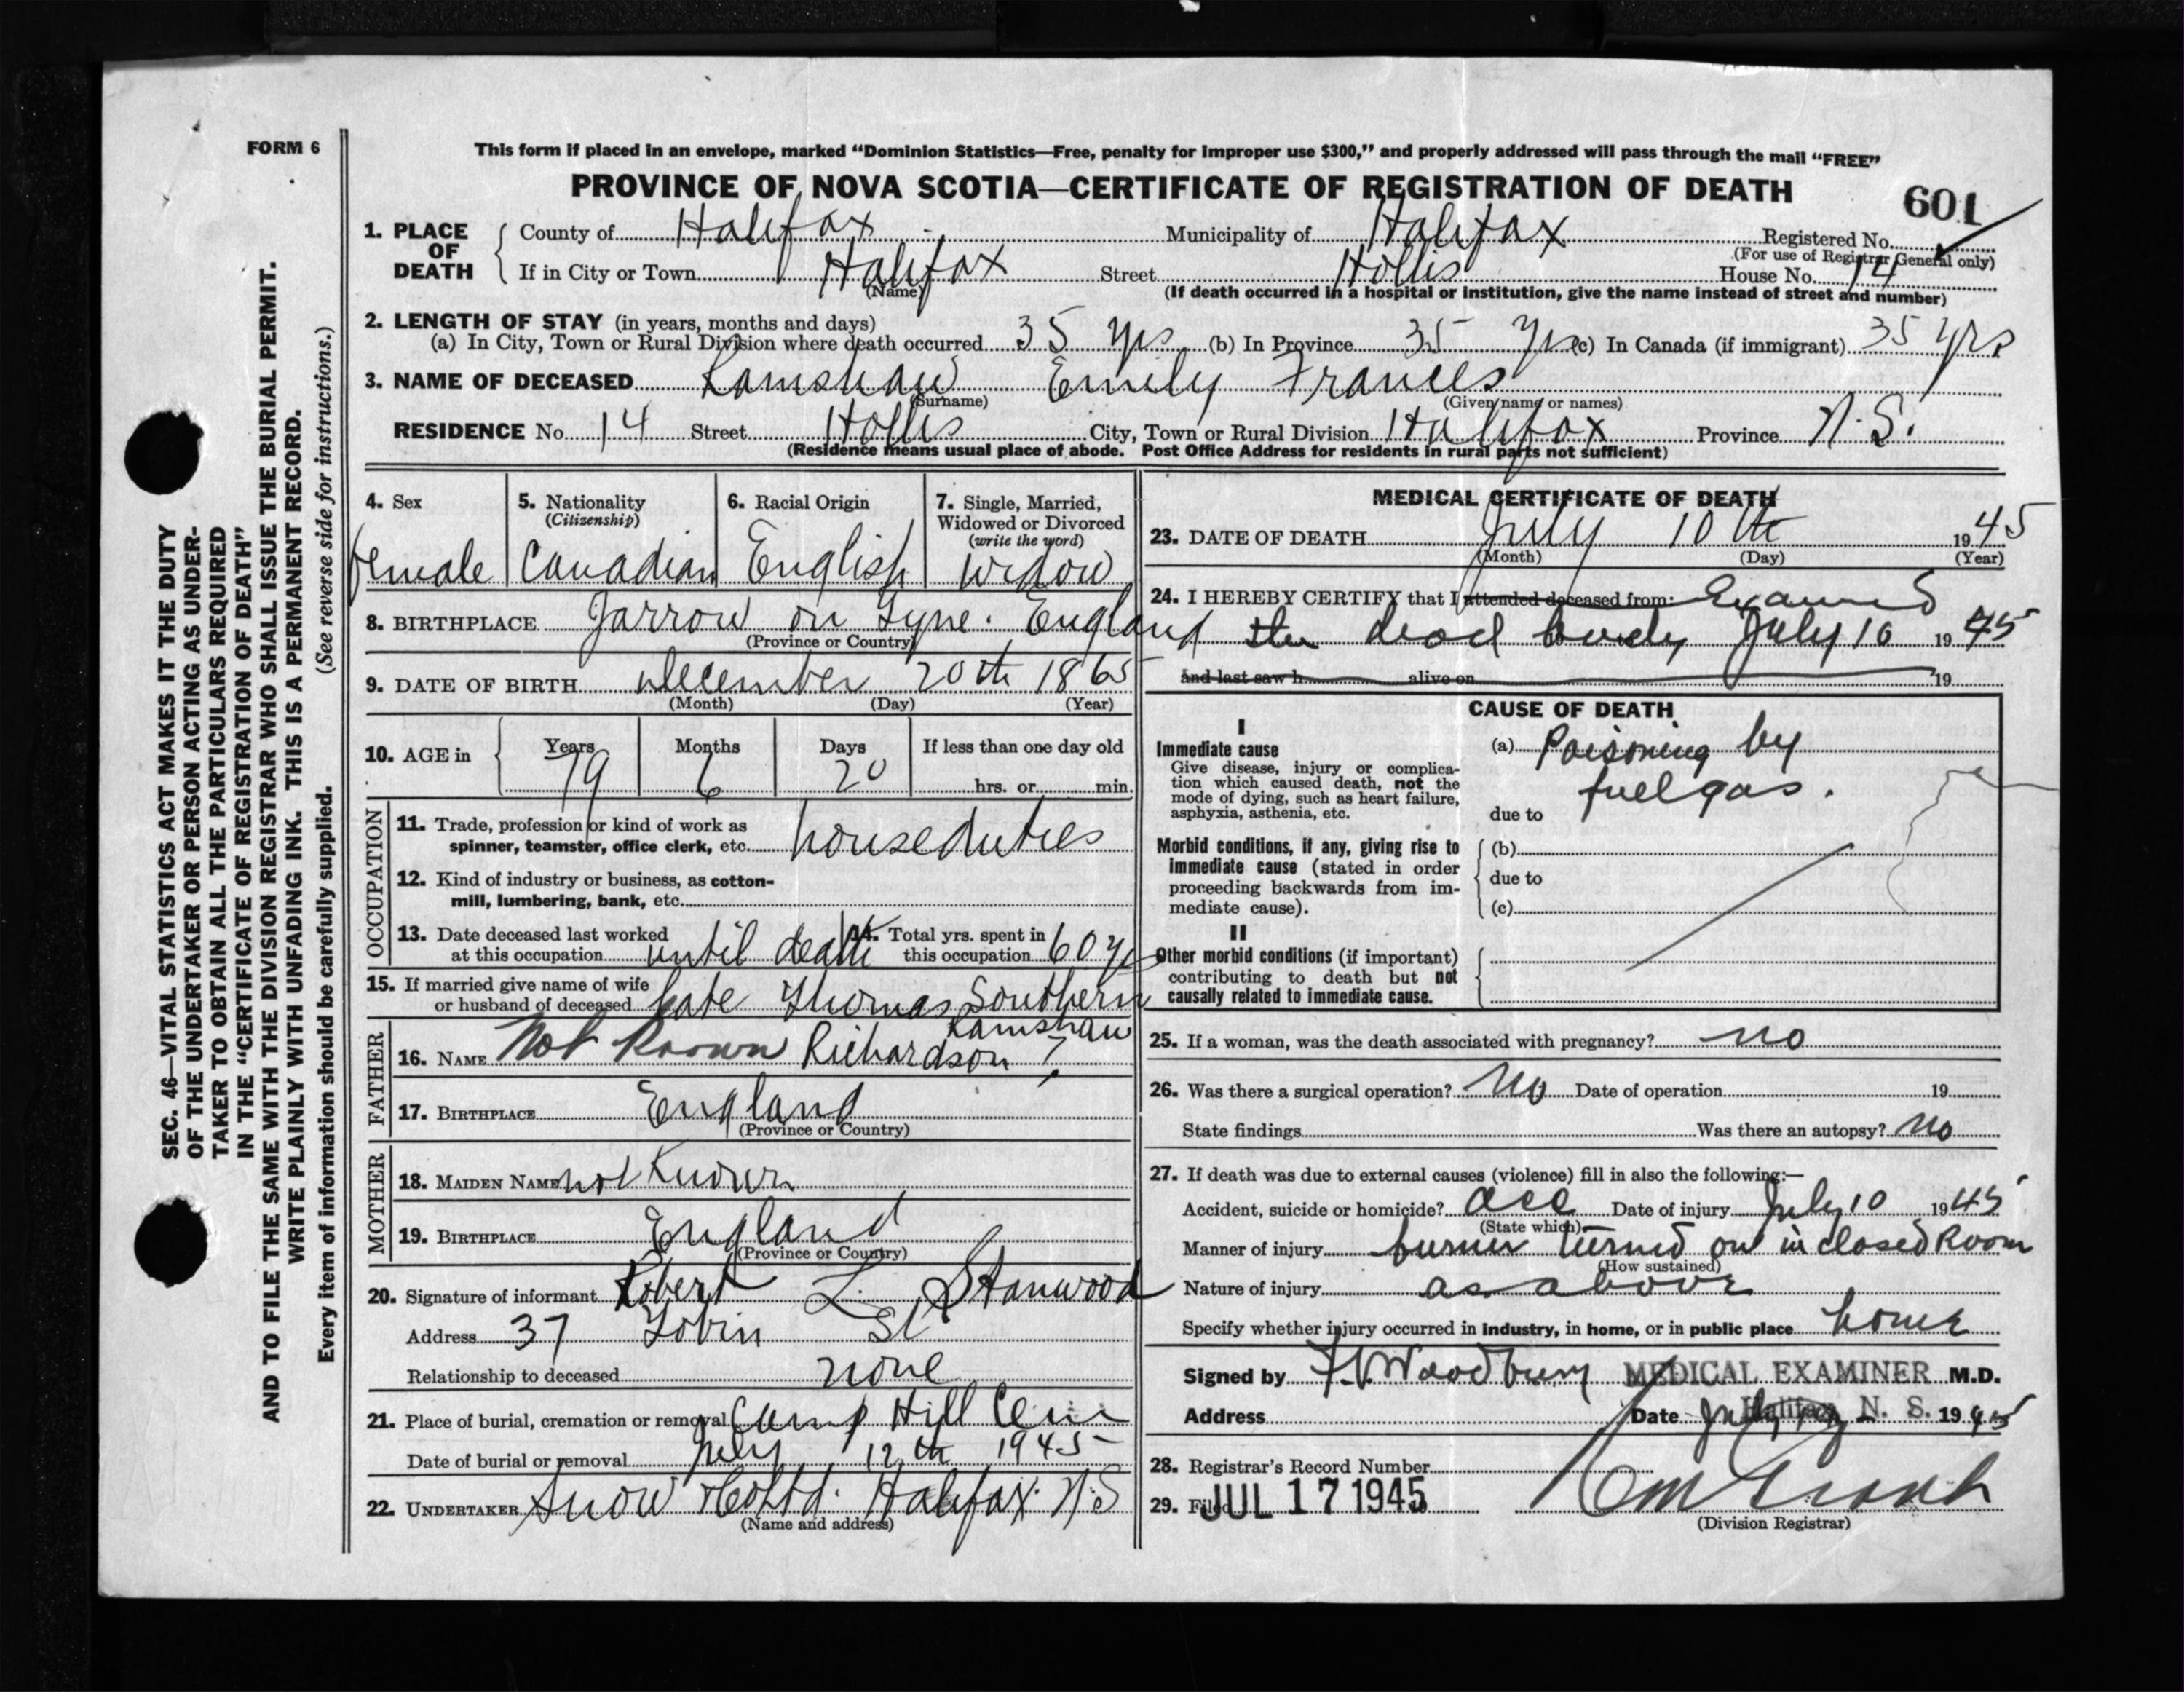 FORM 6
This form if placed in an envelope, marked “Dominion Statistics—Free, penalty for improper use $300,” and properly addressed will pass through the mail “FREE”
PROVINCE OF NOVA SCOTIA—CERTIFICATE OF REGISTRATION OF DEATH
601
1. PLACE OF DEATH
County of Halifax Municipality of Halifax Registered No.
(For use of Registrar General only)
If in City or Town Halifax Street Hollis House No. 14
(Name)
(If death occurred in a hospital or institution, give the name instead of street and number)
2. LENGTH OF STAY (in years, months and days)
(a) In City, Town or Rural Division where death occurred 35 yrs (b) In Province 35 yrs (c) In Canada (if immigrant) 35 yrs
3. NAME OF DECEASED Ramshaw Emily Frances
(Surname) (Given name or names)
RESIDENCE No. 14 Street Hollis City, Town or Rural Division Halifax Province N.S.
(Residence means usual place of abode. Post Office Address for residents in rural parts not sufficient)
4. Sex
female
5. Nationality
(Citizenship)
Canadian
6. Racial Origin
English
7. Single, Married,
Widowed or Divorced
(write the word)
Widow
8. BIRTHPLACE Jarrow on Tyne. England
(Province or Country)
9. DATE OF BIRTH December 20th 1865
(Month) (Day) (Year)
10. AGE in Years Months Days If less than one day old
79 6 20 hrs. or min.
OCCUPATION
11. Trade, profession or kind of work as
spinner, teamster, office clerk, etc. houseduties
12. Kind of industry or business, as cotton-
mill, lumbering, bank, etc.
13. Date deceased last worked
at this occupation until death
14. Total yrs. spent in
this occupation 60 yrs
15. If married give name of wife
or husband of deceased Late Thomas Southern
Ramshaw
FATHER
16. NAME Not Known Richardson ?
17. BIRTHPLACE England
(Province or Country)
MOTHER
18. MAIDEN NAME not Known
19. BIRTHPLACE England
(Province or Country)
20. Signature of informant Robert L. Stanwood
Address 37 Tobin St
Relationship to deceased none
21. Place of burial, cremation or removal Camp Hill Cem
Date of burial or removal July 12th 1945
22. UNDERTAKER Snow & Co Ltd. Halifax. N.S
(Name and address)
MEDICAL CERTIFICATE OF DEATH
23. DATE OF DEATH July 10th 1945
(Month) (Day) (Year)
24. I HEREBY CERTIFY that I attended deceased from: Examined
the dead body July 10 1945
and last saw h alive on 19
CAUSE OF DEATH
I
Immediate cause
Give disease, injury or complica-
tion which caused death, not the
mode of dying, such as heart failure,
asphyxia, asthenia, etc.
(a) Poisoning by
fuel gas.
due to
Morbid conditions, if any, giving rise to
immediate cause (stated in order
proceeding backwards from im-
mediate cause).
(b)
due to
(c)
II
Other morbid conditions (if important)
contributing to death but not
causally related to immediate cause.
25. If a woman, was the death associated with pregnancy? no
26. Was there a surgical operation? No Date of operation 19
State findings Was there an autopsy? No
27. If death was due to external causes (violence) fill in also the following:—
Accident, suicide or homicide? acc Date of injury July 10 1945
(State which)
Manner of injury burner turned on in closed Room
(How sustained)
Nature of injury as above
Specify whether injury occurred in industry, in home, or in public place home
Signed by F.V. Woodbury MEDICAL EXAMINER M.D.
Address Date July Halifax, N. S. 1945
28. Registrar’s Record Number
29. Filed JUL 17 1945
(Division Registrar)
SEC. 46—VITAL STATISTICS ACT MAKES IT THE DUTY
OF THE UNDERTAKER OR PERSON ACTING AS UNDER-
TAKER TO OBTAIN ALL THE PARTICULARS REQUIRED
IN THE “CERTIFICATE OF REGISTRATION OF DEATH”
AND TO FILE THE SAME WITH THE DIVISION REGISTRAR WHO SHALL ISSUE THE BURIAL PERMIT.
WRITE PLAINLY WITH UNFADING INK. THIS IS A PERMANENT RECORD.
Every item of information should be carefully supplied. (See reverse side for instructions.)